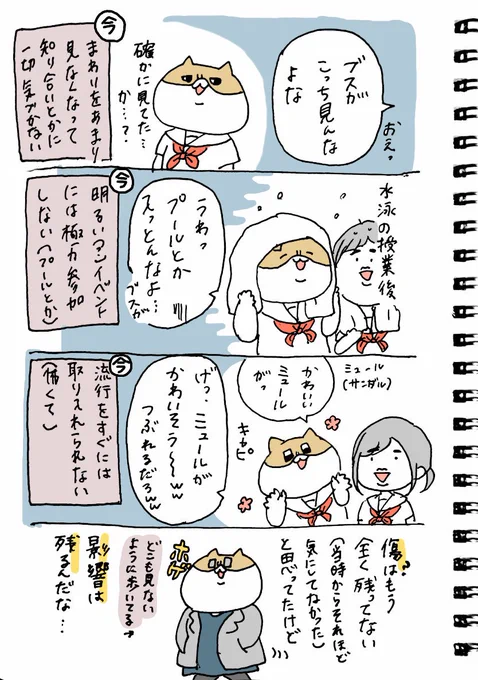 ブスが
こっち見んな
よな
おぇっ
確かに見てた…
か…?
今
まわりをあまり
見なくなって
知り合いとかに
一切気づかない
水泳の授業後
うわっ
プールとか
入っとんなよ…
ブスが
今
明るいマンイベント
には極力参加
しない(プールとか)
ミュール
(サンダル)
かわいい
ミュール
がっ
キャピ
げっ…ミュールが
かわいそう〜〜ww
つぶれるだろww
今
流行をすぐには
取り入れられない
(怖くて)
傷はもう
全く残ってない
(当時からそれほど
気にしてなかった)
と思ってたけど
ボゲ
どこも見ない
ように歩いてる→
影響は
残るんだな…